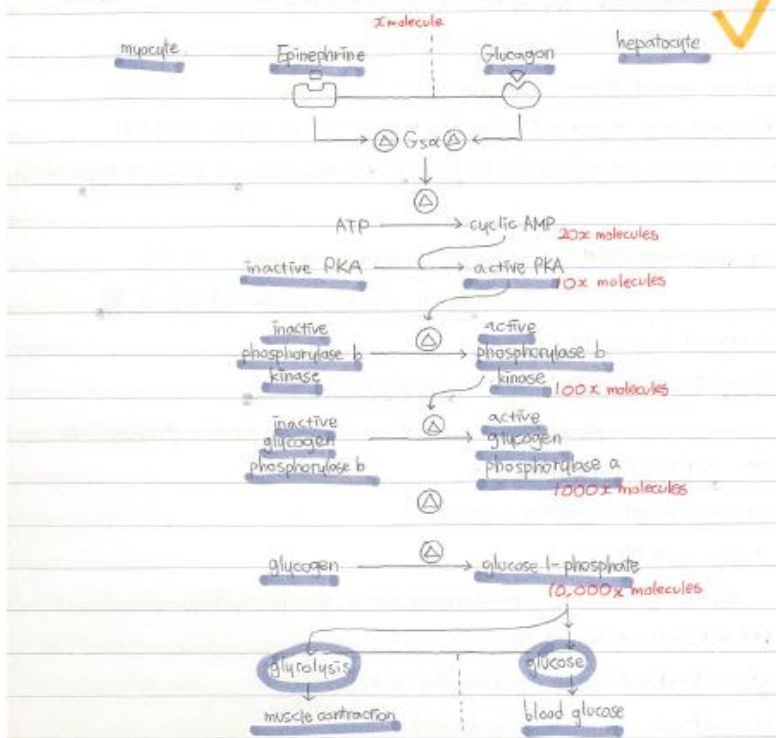 x molecule
myocyte Epinephrine Glucagon hepatocyte
Gsα
ATP cyclic AMP 20x molecules
inactive PKA active PKA
10x molecules
inactive active
phosphorylase b phosphorylase b
kinase kinase 100x molecules
inactive active
glycogen glycogen
phosphorylase b phosphorylase a
1000x molecules
glycogen glucose 1-phosphate
10,000x molecules
glycolysis glucose
muscle contraction blood glucose